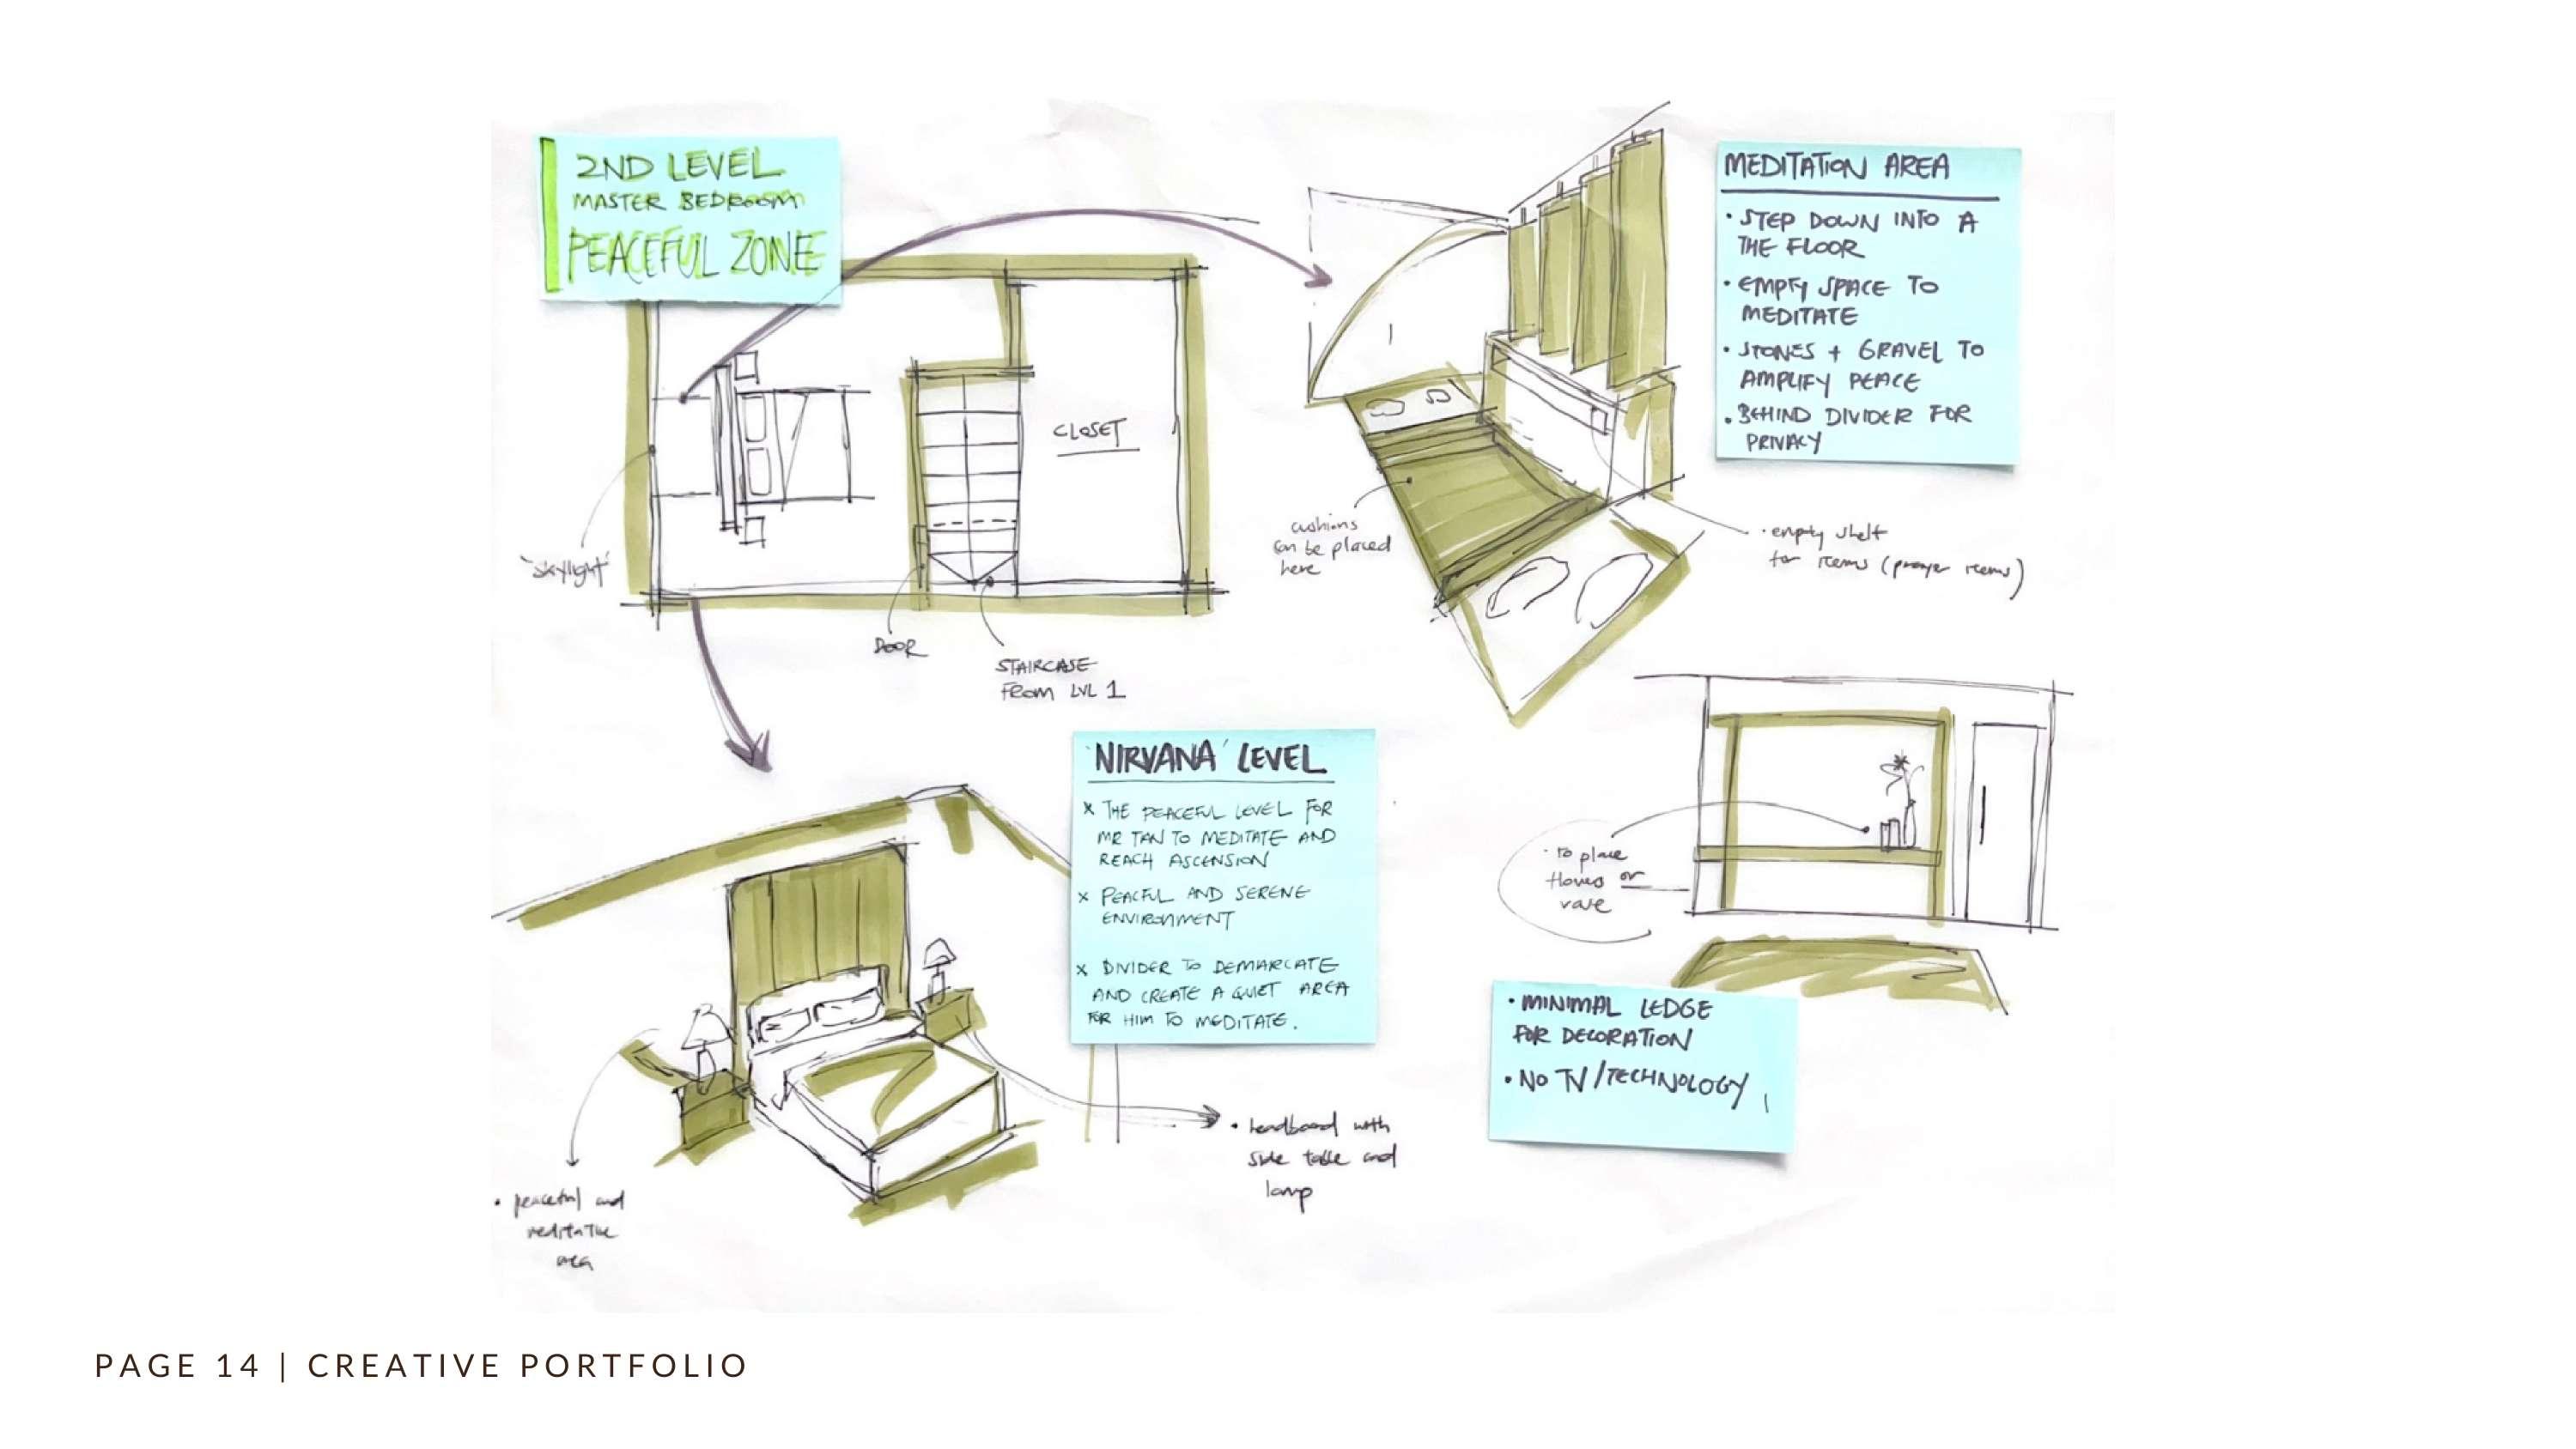 2ND LEVEL
MASTER BEDROOM
PEACEFUL ZONE
CLOSET
'skylight'
DOOR
STAIRCASE
FROM LVL 1
MEDITATION AREA
• STEP DOWN INTO A
THE FLOOR
• EMPTY SPACE TO
MEDITATE
• STONES + GRAVEL TO
AMPLIFY PEACE
• BEHIND DIVIDER FOR
PRIVACY
cushions
can be placed
here
• empty shelf
for items (prayer items)
'NIRVANA' LEVEL
x THE PEACEFUL LEVEL FOR
MR TAN TO MEDITATE AND
REACH ASCENSION
x PEACFUL AND SERENE
ENVIRONMENT
x DIVIDER TO DEMARCATE
AND CREATE A QUIET AREA
FOR HIM TO MEDITATE.
• to place
flowers or
vase
• MINIMAL LEDGE
FOR DECORATION
• NO TV/TECHNOLOGY
• headboard with
side table and
lamp
• peaceful and
meditative
area
PAGE 14 | CREATIVE PORTFOLIO